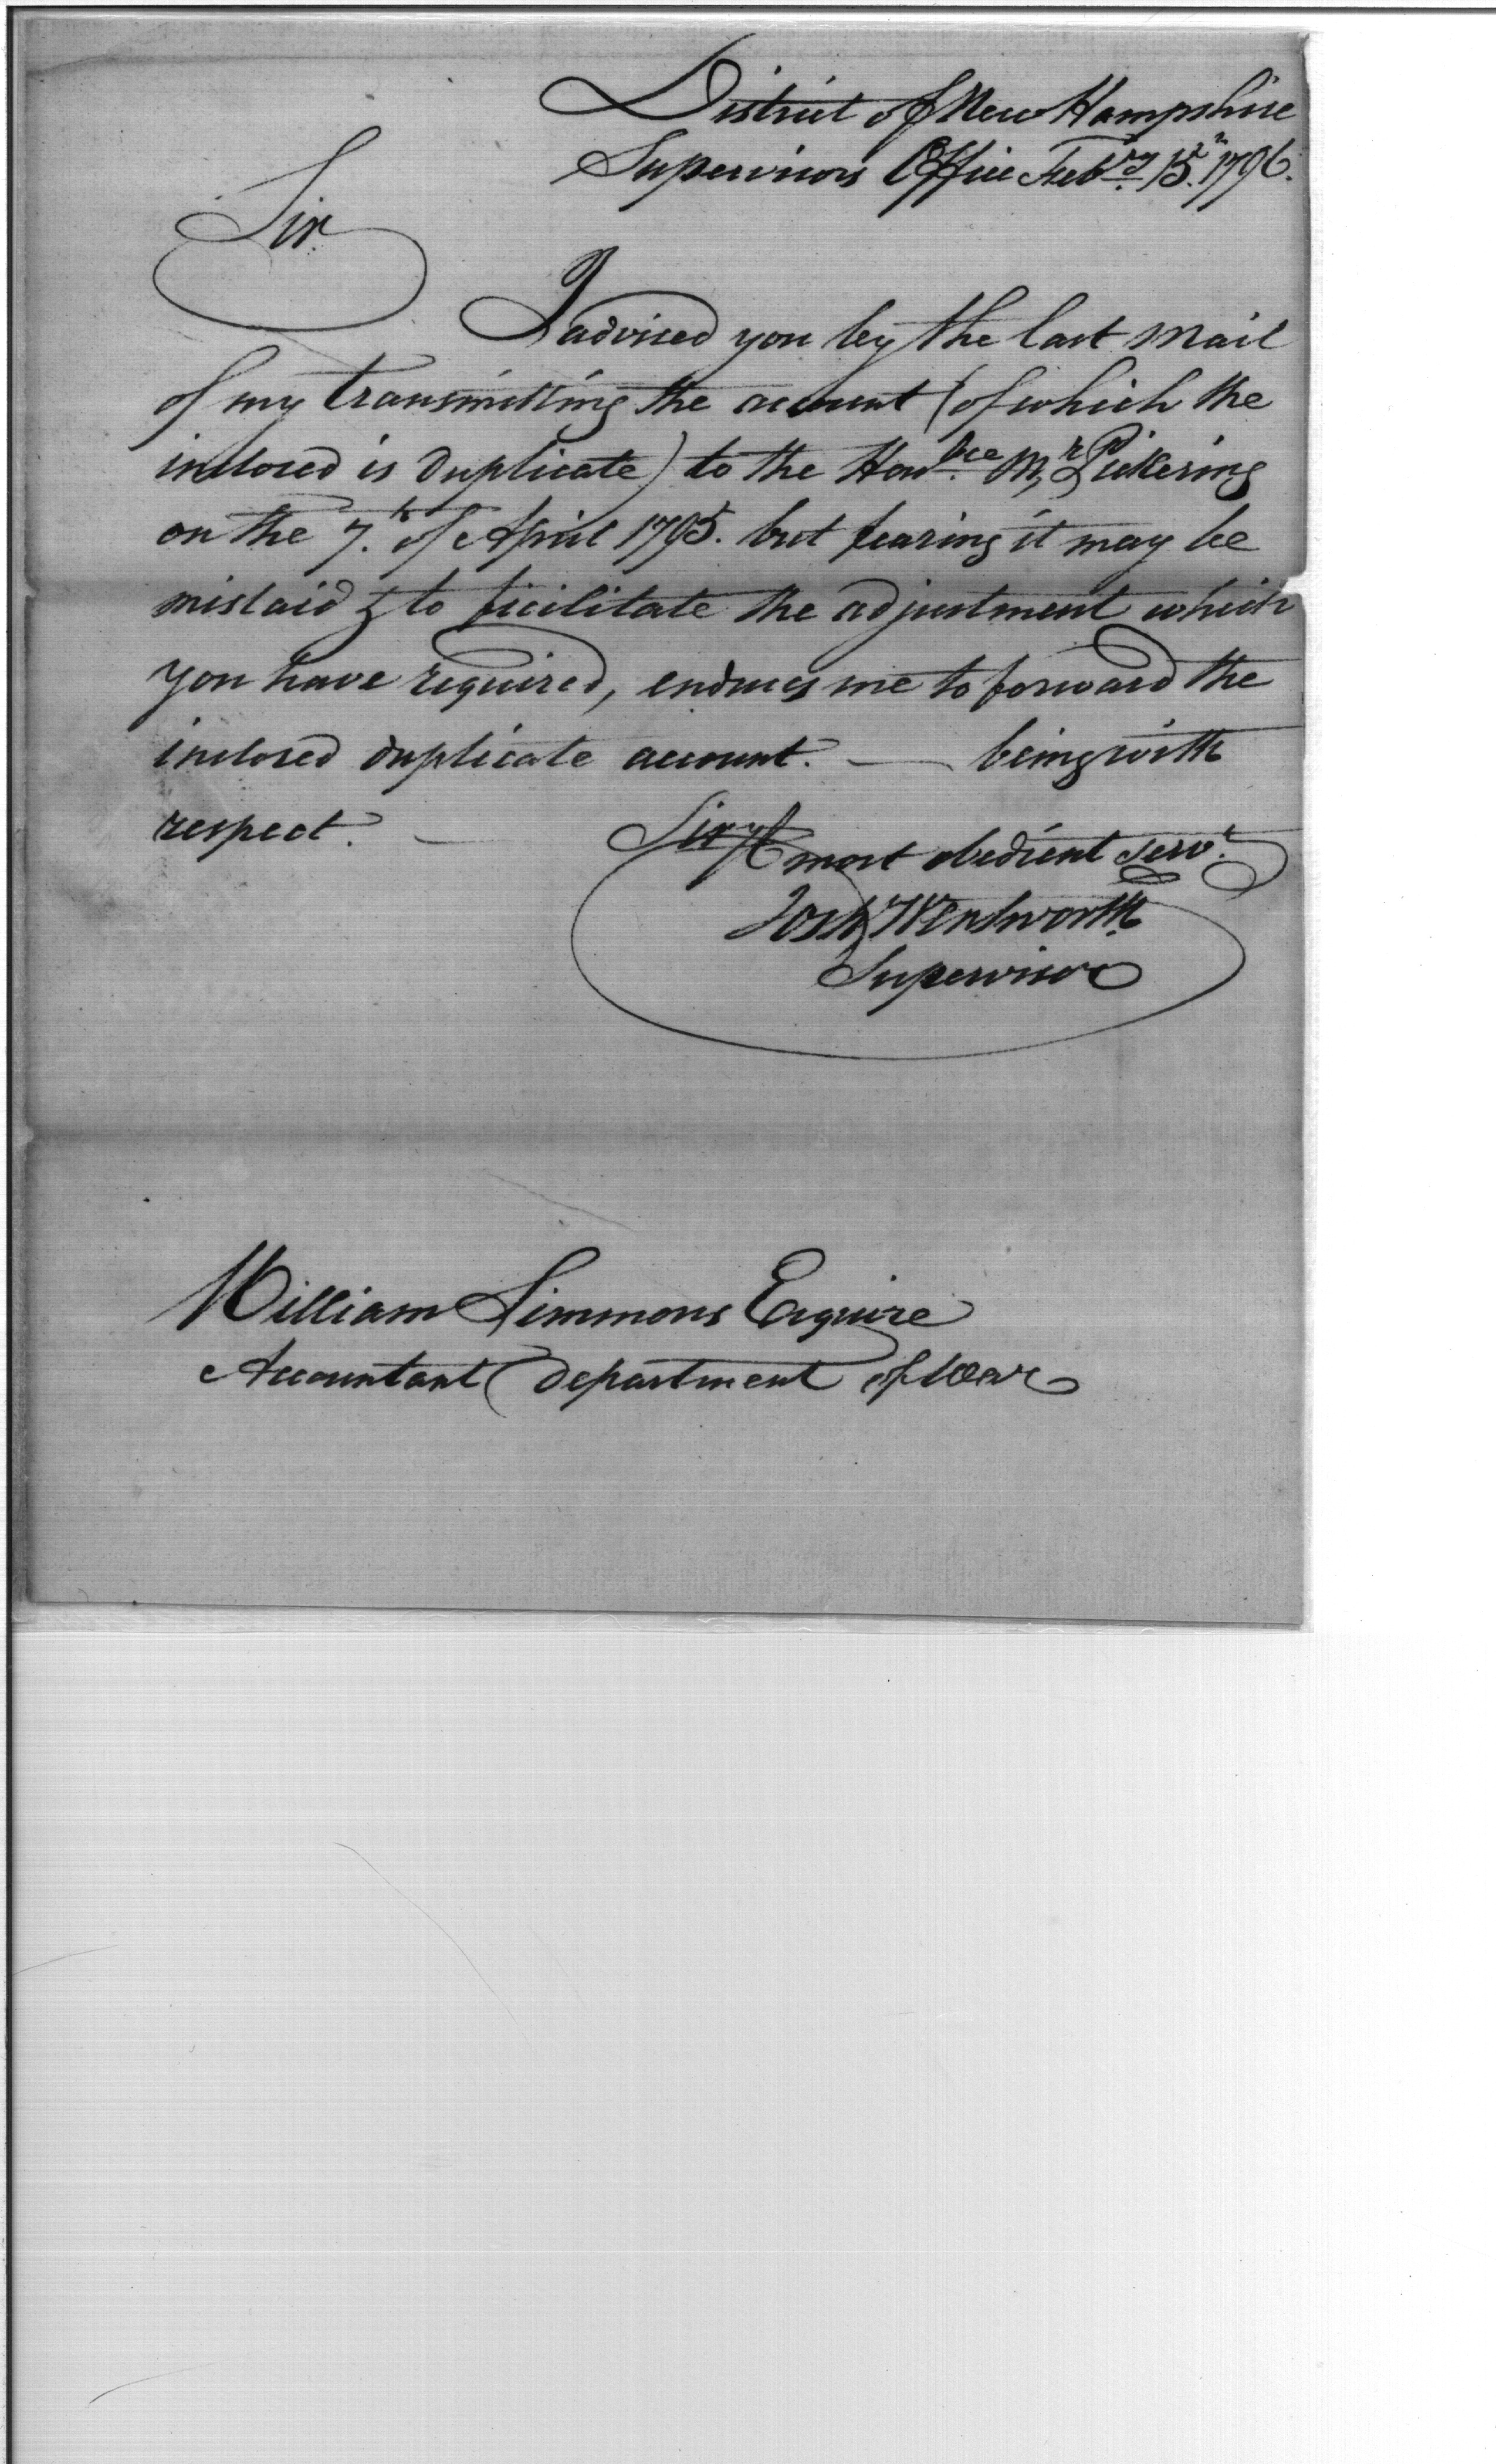 District of New Hampshire
Supervisors Office Feb.ry 15.th 1796.
Sir
I advised you by the last mail
of my transmitting the account (of which the
inclosed is duplicate) to the Hon.ble Mr Pickering
on the 7.th of April 1795. but fearing it may be
mislaid & to facilitate the adjustment which
you have required, enduces me to forward the
inclosed duplicate account. — being with
respect. —
Sir yr most obedient serv.t
Josh Wentworth
Supervisor
William Simmons Esquire
Accountant department of War